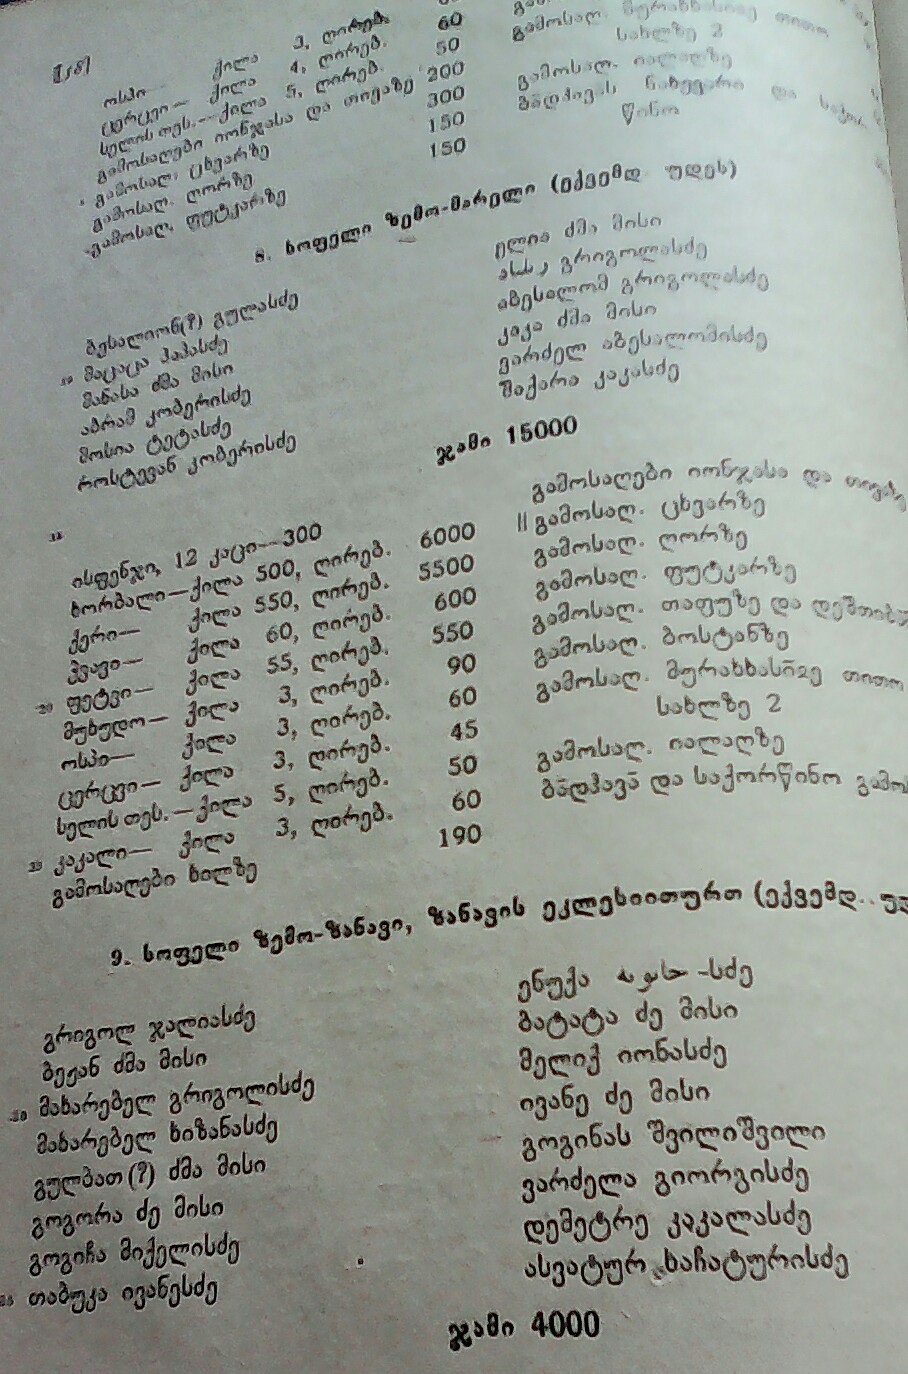 ოსპი— ქილა 3, ღირებ. 60
ცერცვი— ქილა 4, ღირებ. 50
სელის თეს.—ქილა 5, ღირებ. 200
გამოსაღები იონჯასა და თივაზე 300
გამოსაღ. ცხვარზე 150
გამოსაღ. ღორზე 150
გამოსაღ. ფუტკარზე
გამოსაღ. თითო
სახლზე 2
გამოსაღ. იალაღზე
ნახევარი და
წინო
8. სოფელი ზემო-მარელი (ექვემდ უდეს)
ბესალიონ(?) გულასძე
მაცაცა პაპასძე
მანასა ძმა მისი
აბრამ კობერისძე
მოსია ტეტასძე
როსტევან კობერისძე
ელია ძმა მისი
გრიგოლასძე
აბესალომ გრიგოლასძე
კაკა ძმა მისი
ვარძელ აბესალომისძე
შაქარა კაკასძე
ჯამი 15000
ისფენჯი, 12 კაცი—300
ხორბალი—ქილა 500, ღირებ. 6000
ქერი— ქილა 550, ღირებ. 5500
ჭვავი— ქილა 60, ღირებ. 600
20 ფეტვი— ქილა 55, ღირებ. 550
მუხუდო— ქილა 3, ღირებ. 90
ოსპი— ქილა 3, ღირებ. 60
ცერცვი— ქილა 3, ღირებ. 45
სელის თეს.—ქილა 5, ღირებ. 50
კაკალი— ქილა 3, ღირებ. 60
გამოსაღები ხილზე 190
გამოსაღები იონჯასა და თივაზე
|| გამოსაღ. ცხვარზე
გამოსაღ. ღორზე
გამოსაღ. ფუტკარზე
გამოსაღ. თაფუზე და
გამოსაღ. ბოსტანზე
გამოსაღ. თითო
სახლზე 2
გამოსაღ. იალაღზე
ბადჰავა და საქორწინო
9. სოფელი ზემო-ზანავი, ზანავის ეკლესიითურთ (ექვემდ.
გრიგოლ ჯალიასძე
ბეჟან ძმა მისი
30 მახარებელ გრიგოლისძე
მახარებელ ხიზანასძე
გულბათ(?) ძმა მისი
გოგორა ძე მისი
გოგიჩა მიქელისძე
თაბუკა ივანესძე
ენუქა -სძე
ბატატა ძე მისი
მელიქ იონასძე
ივანე ძე მისი
გოგინას შვილიშვილი
ვარძელა გიორგისძე
დემეტრე კაკალასძე
ასვატურ ხაჩატურისძე
ჯამი 4000